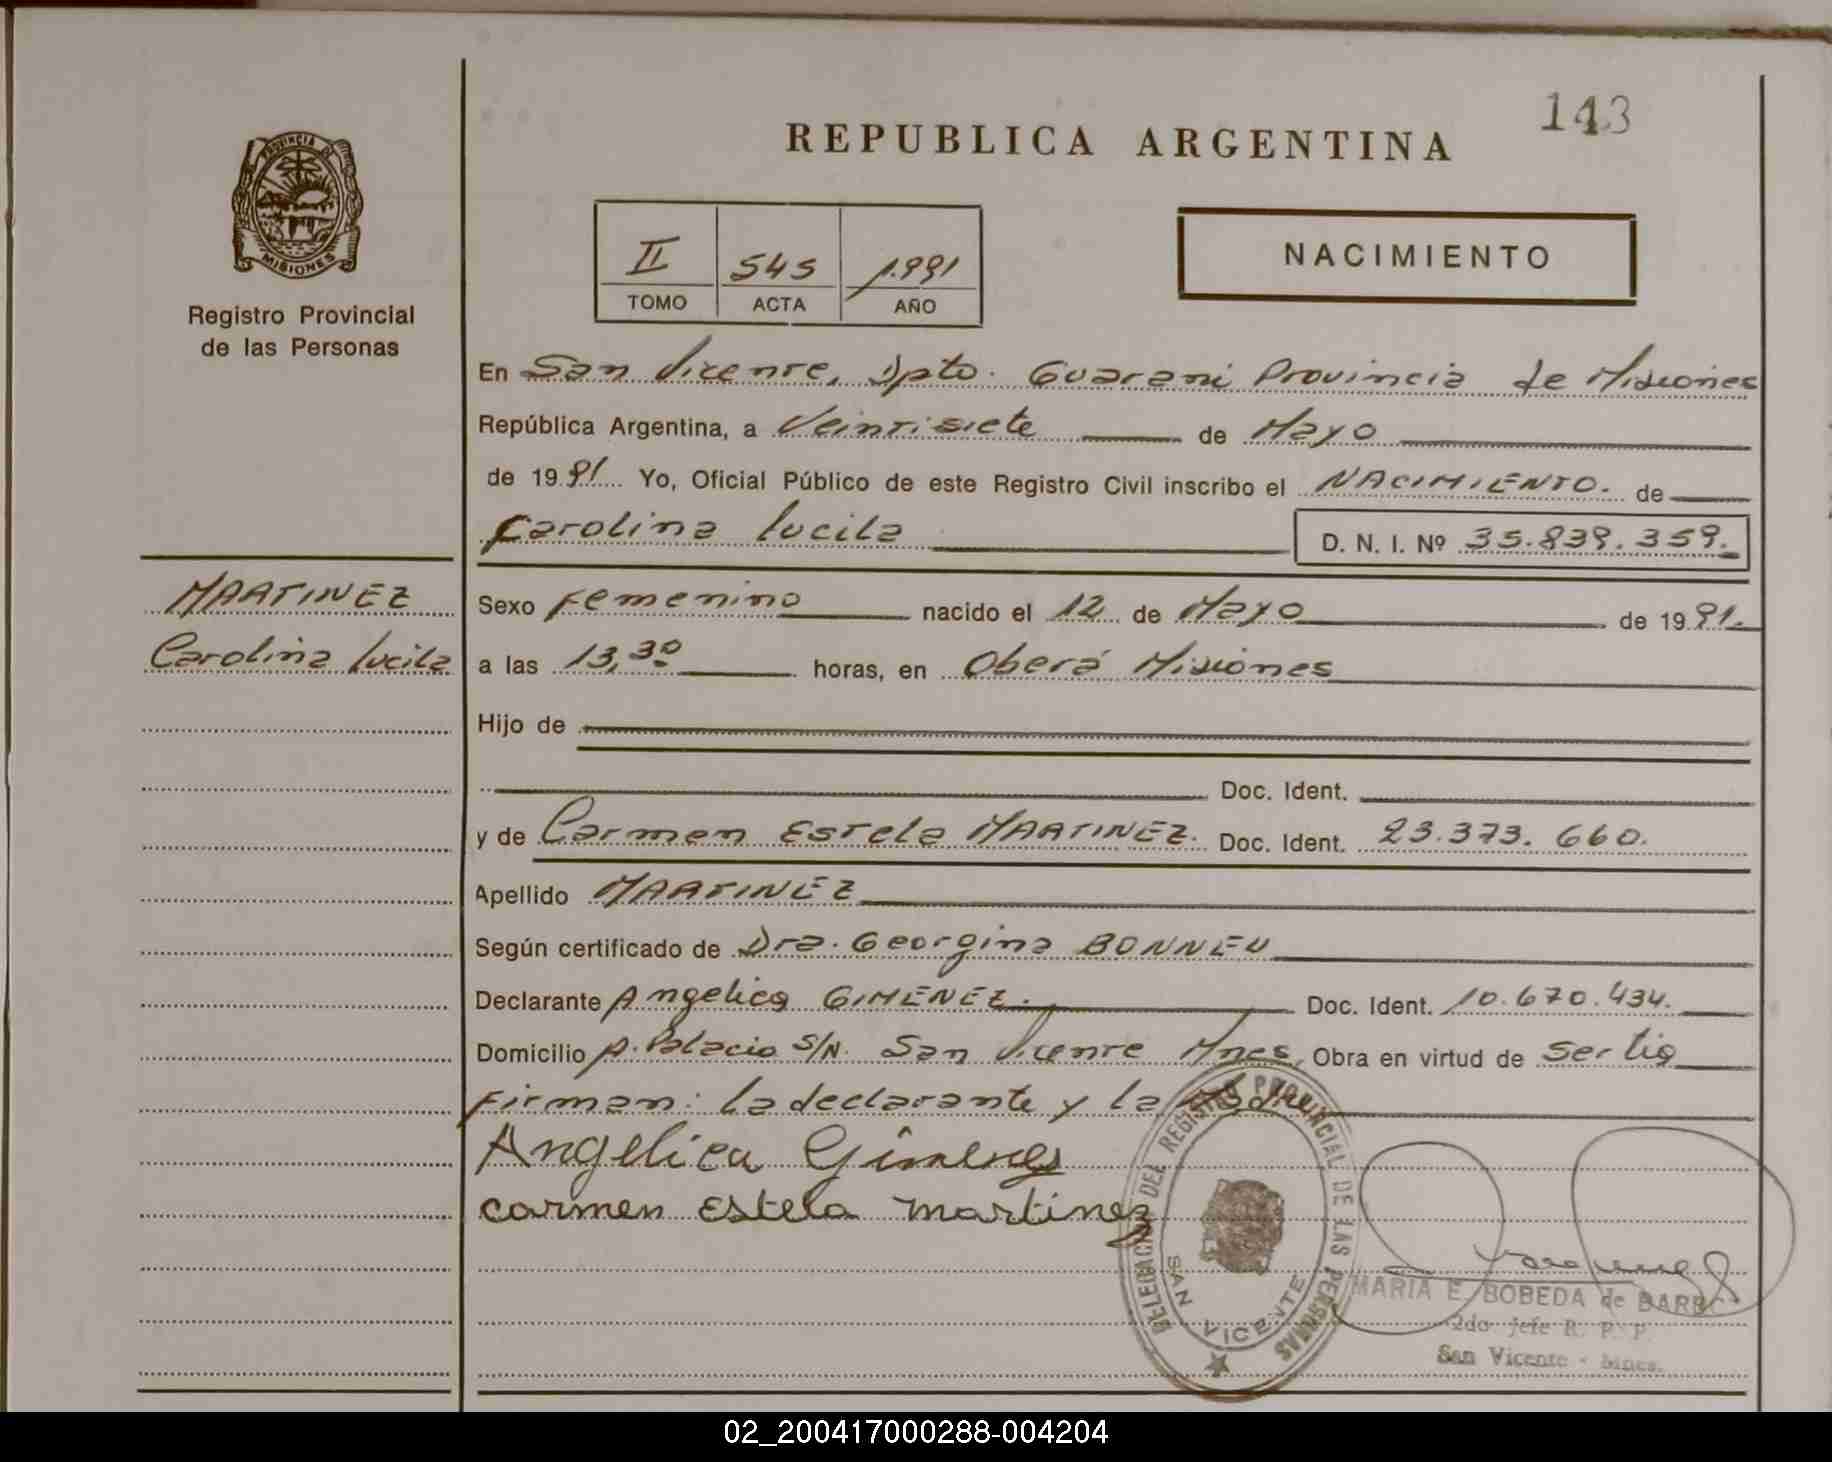 143
REPUBLICA ARGENTINA
PROVINCIA DE
MISIONES
Registro Provincial
de las Personas
II 545 1.991
TOMO ACTA AÑO
NACIMIENTO
En San Vicente, Dpto. Guarani Provincia de Misiones
República Argentina, a Veintisiete de Mayo
de 1991 Yo, Oficial Público de este Registro Civil inscribo el NACIMIENTO. de
Carolina Lucila D. N. I. Nº 35.839.359.
MARTINEZ
Carolina Lucila
Sexo Femenino nacido el 12 de Mayo de 1991.
a las 13,30 horas, en Oberá Misiones
Hijo de
Doc. Ident.
y de Carmen Estela MARTINEZ. Doc. Ident. 23.373.660.
Apellido MARTINEZ
Según certificado de Dra. Georgina BONNEU
Declarante Angelica GIMENEZ. Doc. Ident. 10.670.434.
Domicilio A. Palacio S/N. San Vicente Mnes, Obra en virtud de ser tia
Firman: la declarante y la Madre
Angélica Gimenez
carmen Estela martinez
DELEGACION DEL REGISTRO PROVINCIAL DE LAS PERSONAS
SAN VICENTE
MARIA E. BOBEDA de
2do. Jefe R. P. P.
San Vicente - Mnes.
02_200417000288-004204